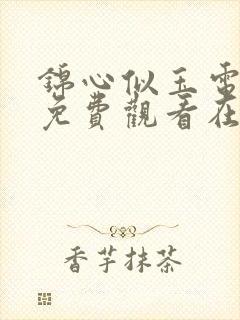 錦心似玉電
免費觀看在
香芋抹茶